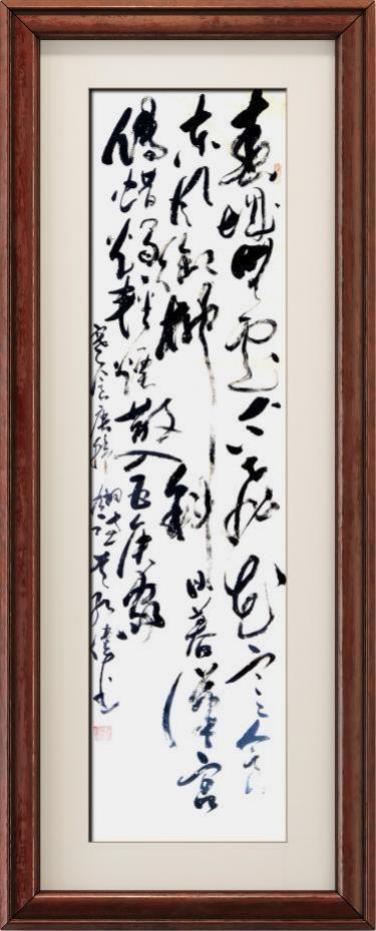 春城無處不飛花寒食
東風御柳斜日暮漢宮
傳蜡燭輕煙散入五侯家